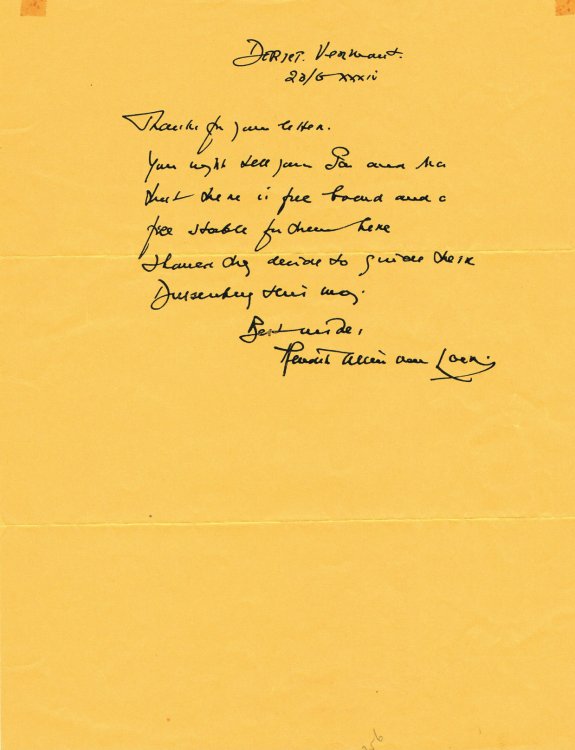 Dorset. Vermont.
20/6 xxxiv
Thanks for your letter.
You might tell your Pa and Ma
that there is free board and a
free stable for them here
should they decide to guide their
Duesenberg this way.
Best wishes,
Hendrik Willem van Loon.